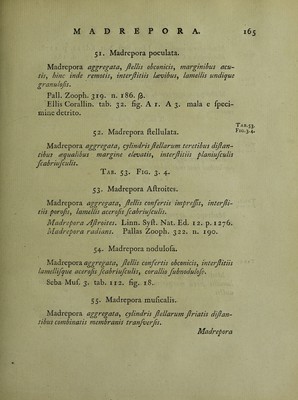 MADREPORA. 165
51. Madrepora poculata.
Madrepora aggregata, ſtellis obconicis, marginibus acu-
tis, hinc inde remotis, interſtitiis lævibus, lamellis undique
granuloſis.
Pall. Zooph. 319. n. 186. β.
Ellis Corallin. tab. 32. fig. A 1. A 3. mala e ſpeci-
mine detrito.
52. Madrepora ſtellulata.
Tab.53.
Fig.3.4.
Madrepora aggregata, cylindris ſtellarum teretibus diſtan-
tibus æqualibus margine elevatis, interſtitiis planiuſculis
ſcabriuſculis.
Tab. 53. Fig. 3. 4.
53. Madrepora Aſtroites.
Madrepora aggregata, ſtellis confertis impreſſis, interſti-
tiis poroſis, lamellis aceroſis ſcabriuſculis.
Madrepora Aſtroites. Linn. Syſt. Nat. Ed. 12. p. 1276.
Madrepora radians. Pallas Zooph. 322. n. 190.
54. Madrepora noduloſa.
Madrepora aggregata, ſtellis confertis obconicis, interſtitiis
lamelliſque aceroſis ſcabriuſculis, corallio ſubnoduloſo.
Seba Muſ. 3. tab. 112. fig. 18.
55. Madrepora muſicalis.
Madrepora aggregata, cylindris ſtellarum ſtriatis diſtan-
tibus combinatis membranis tranſverſis.
Madrepora